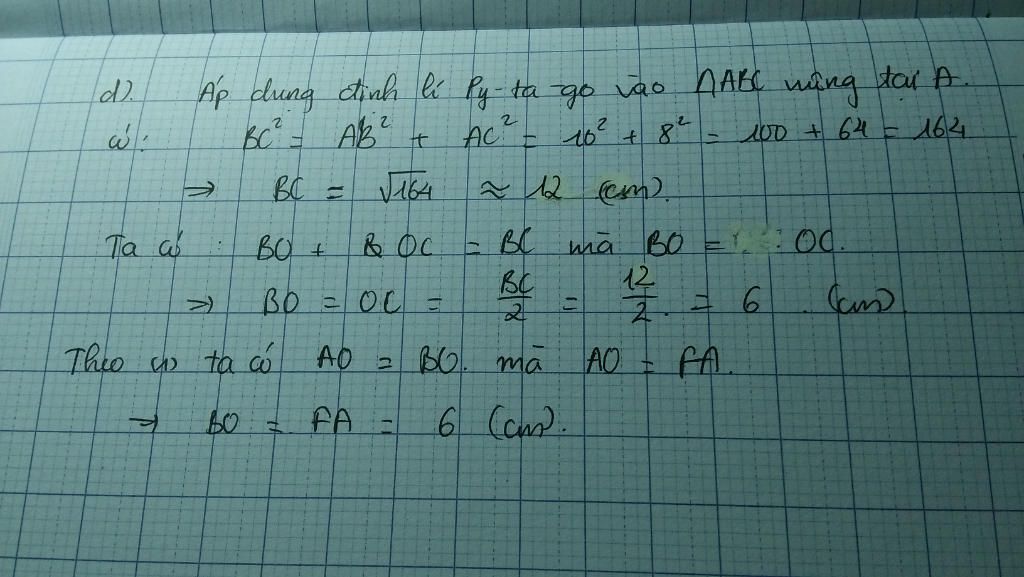 d). Áp dụng định lí Py-ta-go vào ΔABC vuông tại A.
có: BC² = AB² + AC² = 10² + 8² = 100 + 64 = 164
⇒ BC = √164 ≈ 12 (cm).
Ta có: BO + OC = BC mà BO = OC.
⇒ BO = OC = BC/2 = 12/2 = 6 (cm)
Theo ta có AO = BO. mà AO = FA.
→ BO = FA = 6 (cm).